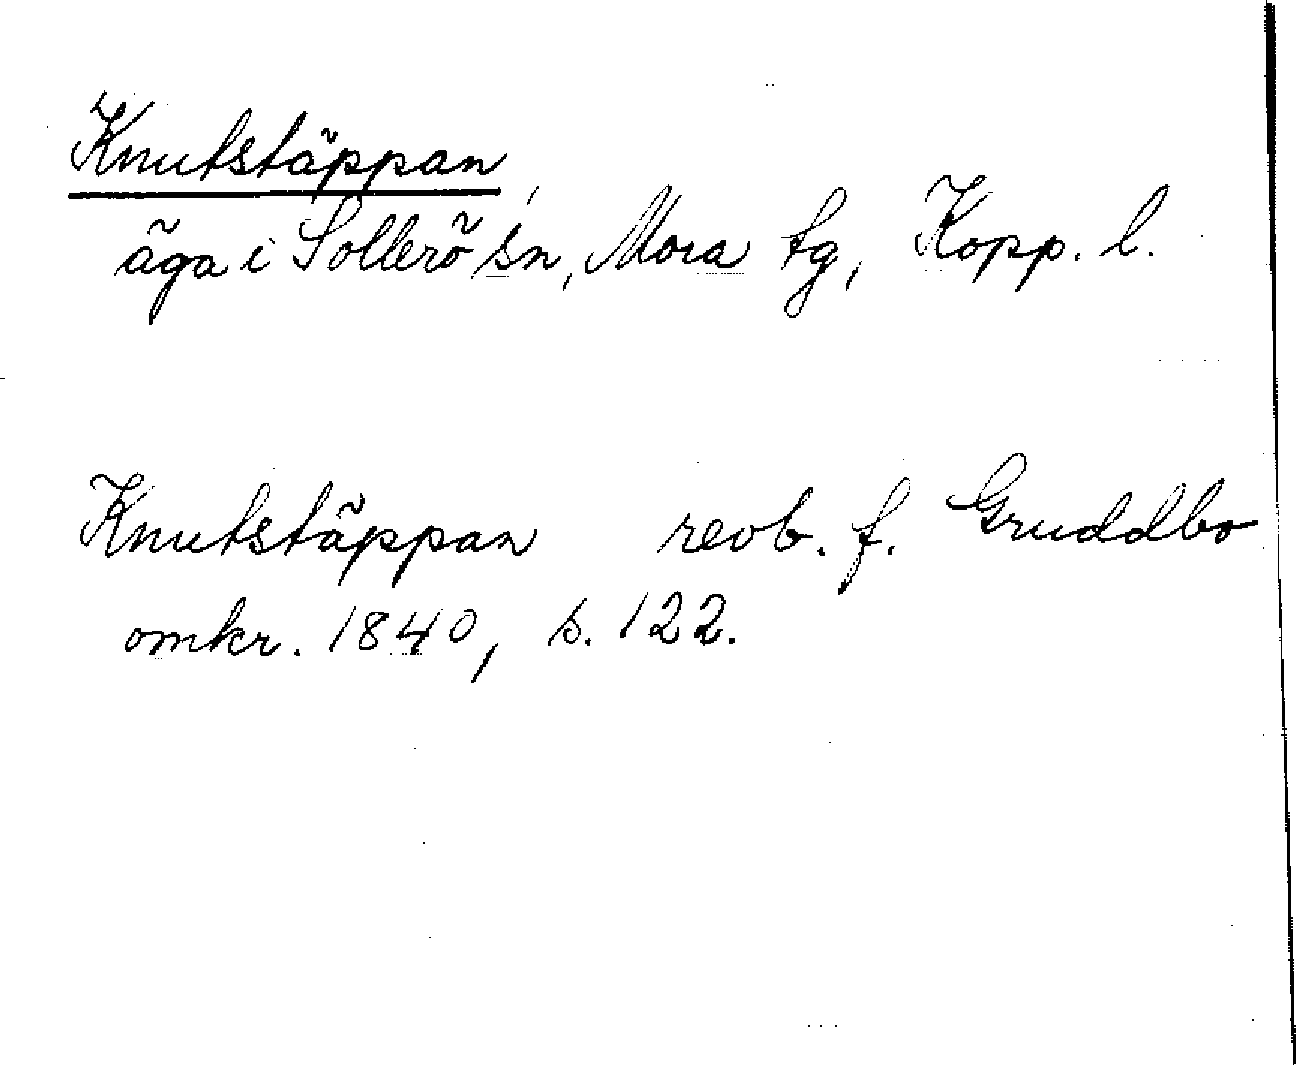 Knutstäppan,
äga i Sollerö sn, Mora tg, Kopp. l.
Knutstäppan revb. f. Gruddbo
omkr. 1840, s. 122.